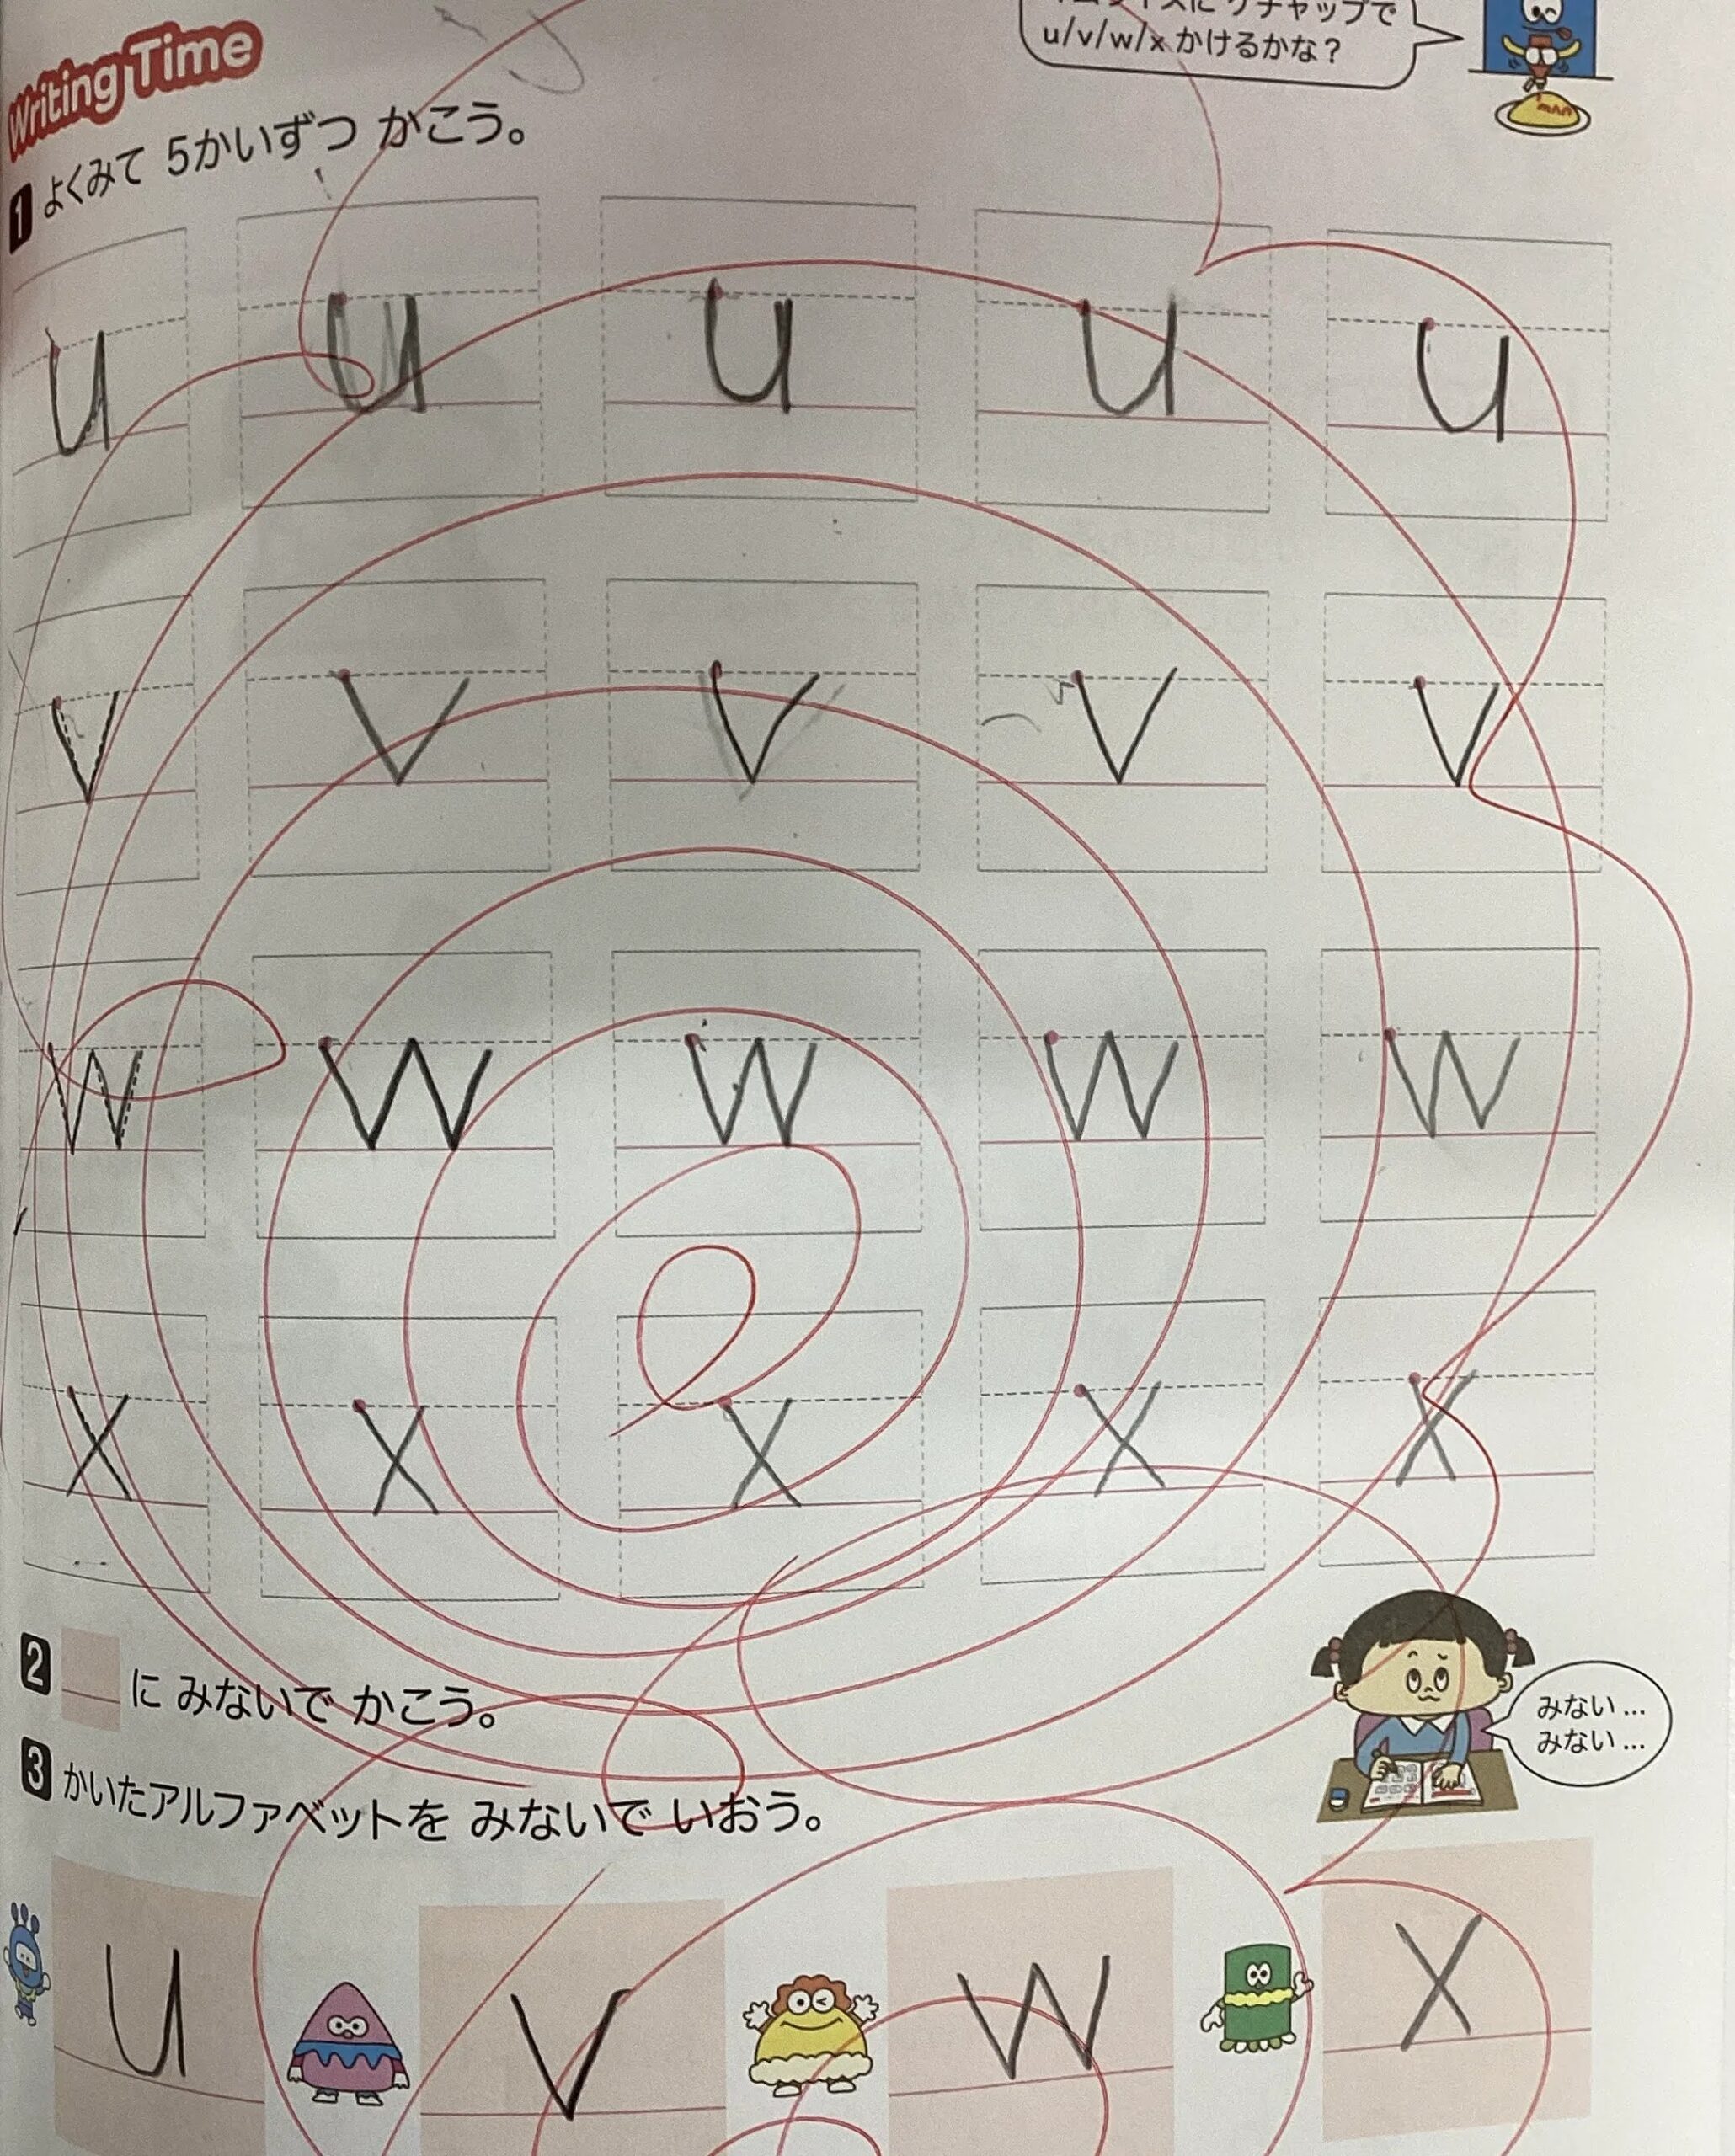 u/v/w/x かけるかな？
Writing Time
1 よくみて 5かいずつ かこう。
u u u u u
v v v v v
w w w w w
x x x x x
2 に みないで かこう。
みない…
みない…
3 かいたアルファベットを みないで いおう。
u v w x